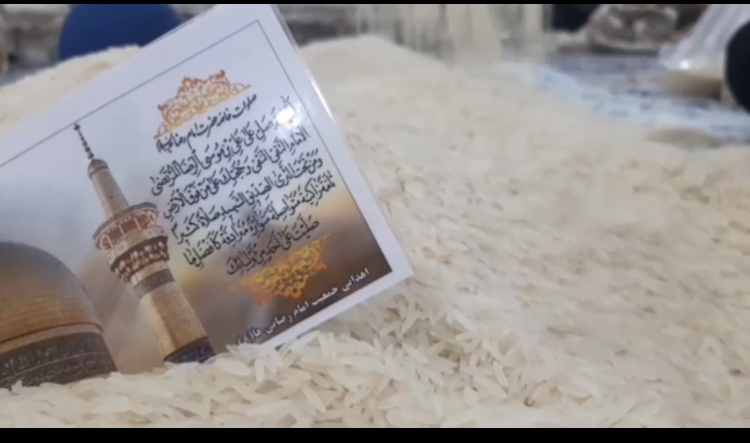 صلوات خاصه حضرت امام رضا
اللهم صل علی علی بن موسی الرضا المرتضی
الامام التقی النقی و حجتک علی من فوق الارض
و من تحت الثری الصدیق الشهید صلاة کثیرة
تامة زاکیة متواصلة متواترة مترادفة کافضل ما
صلیت علی احد من اولیائک
اهدایی جمعیت امام رضایی های